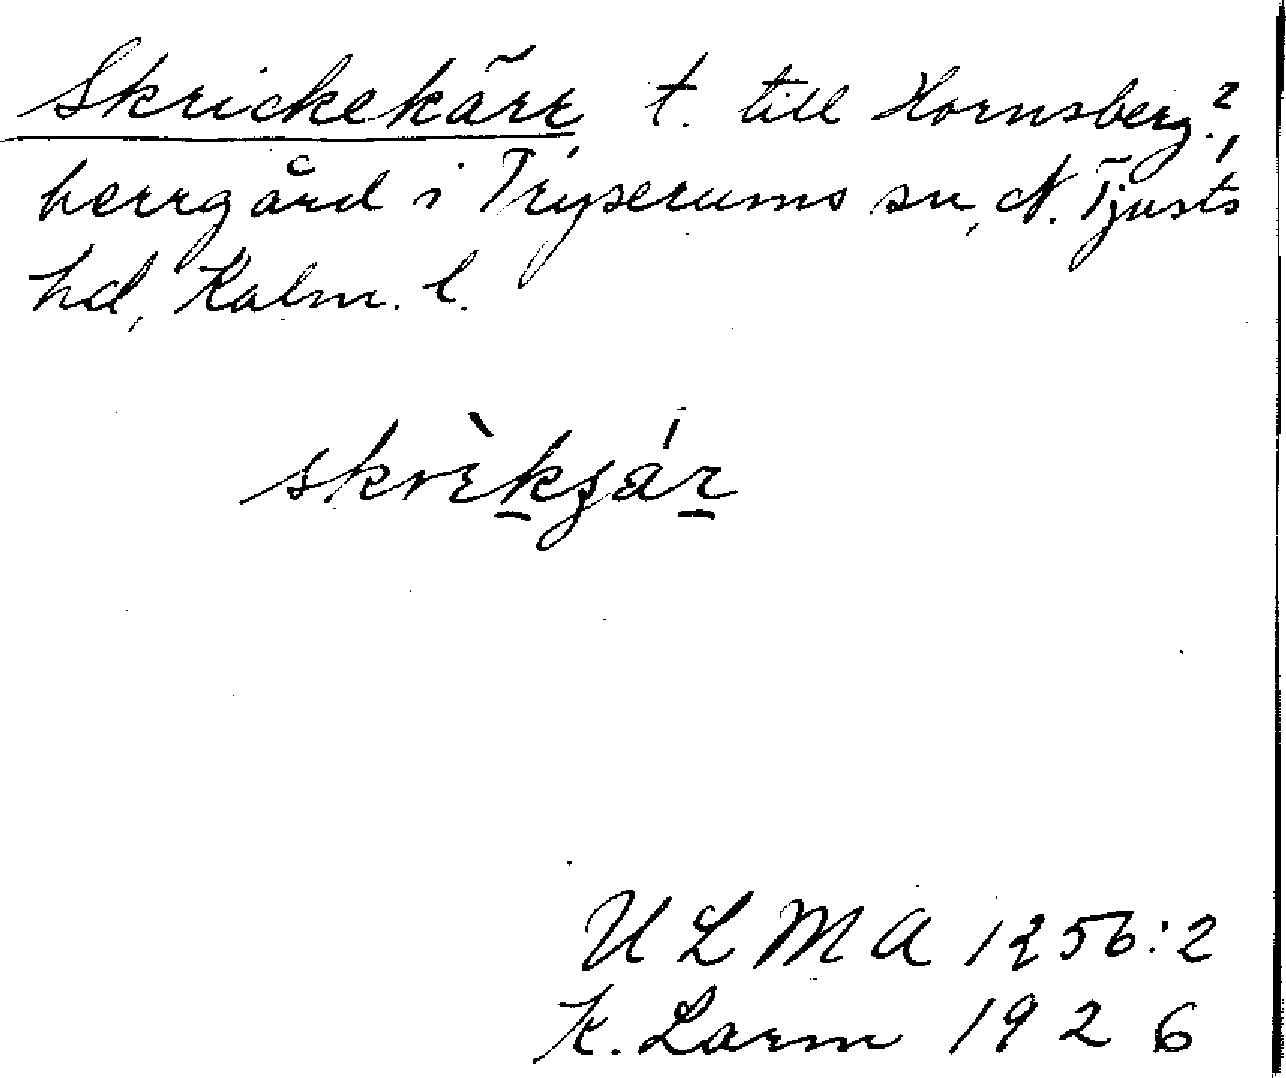 Skrickekärr, t. till Hornsberg?,
herrgård i Tryserums sn, N. Tjusts
hd, Kalm. l.
skrìkjár
ULMA 1256:2
K. Larm 1926